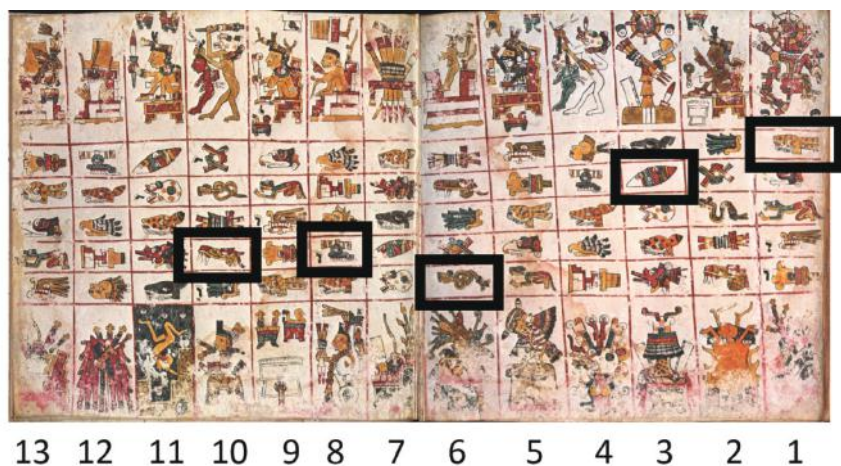 13 12 11 10 9 8 7 6 5 4 3 2 1